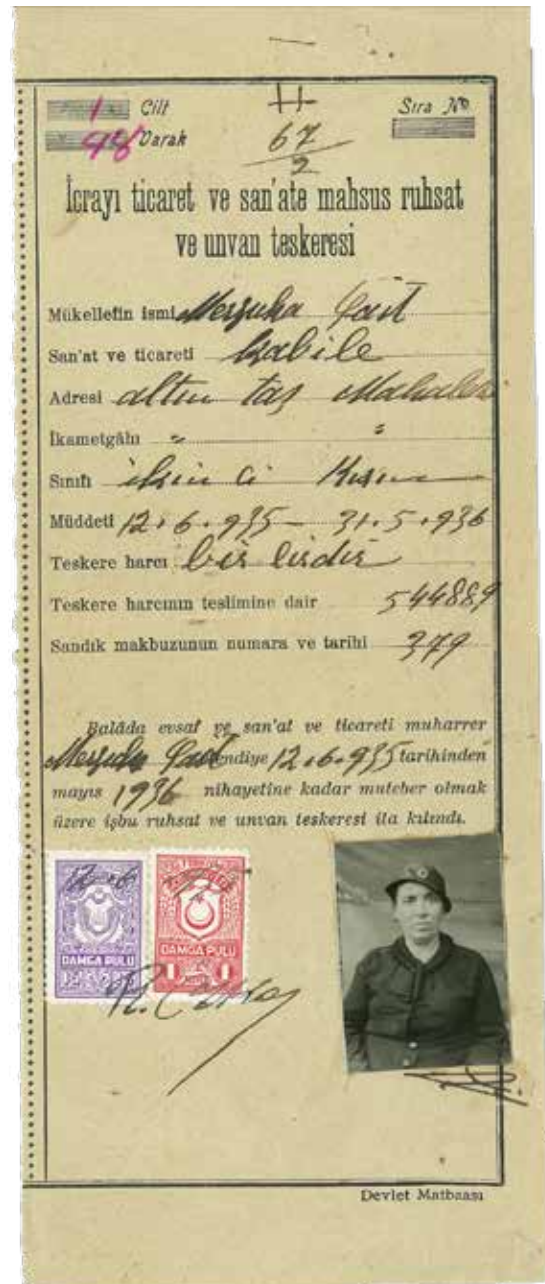 1 Cilt
H
Sıra №
98 Varak
67
2
İcrayı ticaret ve san'ate mahsus ruhsat
ve unvan teskeresi
Mükellefin ismi
San'at ve ticareti kabile
Adresi altın taş Mahalesi
İkametgâhı " "
Sınıfı ikin ci Kısım
Müddeti 12.6.935 — 31.5.936
Teskere harcı bir liradır
Teskere harcının teslimine dair 544889
Sandık makbuzunun numara ve tarihi 379
Balâda evsaf ve san'at ve ticareti muharrer
endiye 12.6.935 tarihinden
mayıs 1936 nihayetine kadar muteber olmak
üzere işbu ruhsat ve unvan teskeresi ita kılındı.
12.6
DAMGA PULU
DAMGA PULU
1 1
Devlet Matbaası